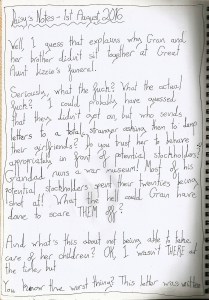 Daisy's Notes - 1st August, 2016
Well, I guess that explains why Gran and
her brother didn't sit together at Great
Aunt Lizzie's funeral.
Seriously, what the fuck? What the actual
fuck? I could probably have guessed
that they didn't get on, but who sends
letters to a total stranger asking them to dump
their girlfriends? Do you trust her to behave
appropriately in front of potential stockholders?
Grandad runs a war museum! Most of his
potential stockholders spent their twenties being
shot at! What the hell could Gran have
done to scare THEM off?
And what's this about not being able to take
care of her children? OK, I wasn't THERE at
the time but
You know the worst thing? This letter was written